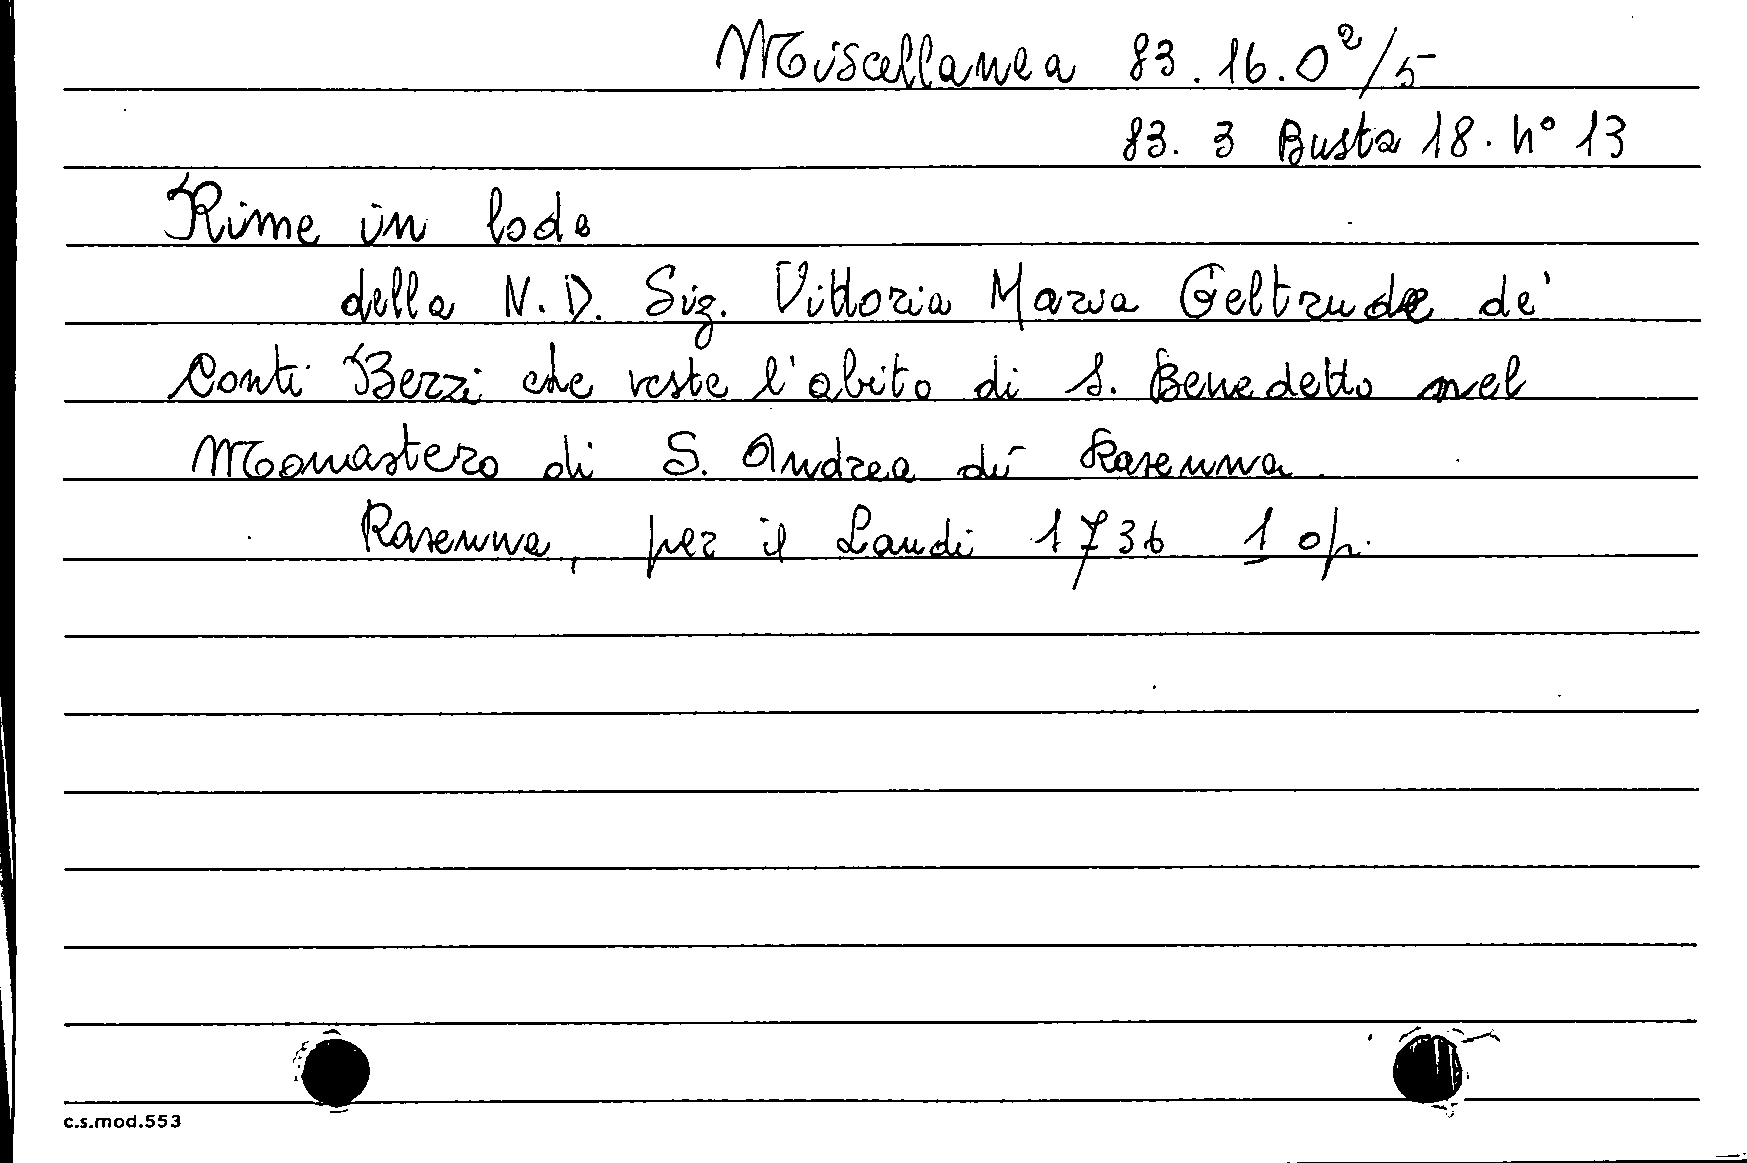 Miscellanea 83.16.O²/5
83. 3 Busta 18. n° 13
Rime in lode
della N.D. Sig. Vittoria Maria Geltrude de'
Conti Bezzi che veste l'abito di S. Benedetto nel
Monastero di S. Andrea di Ravenna
Ravenna, per il Landi 1736 1 op.
c.s.mod.553